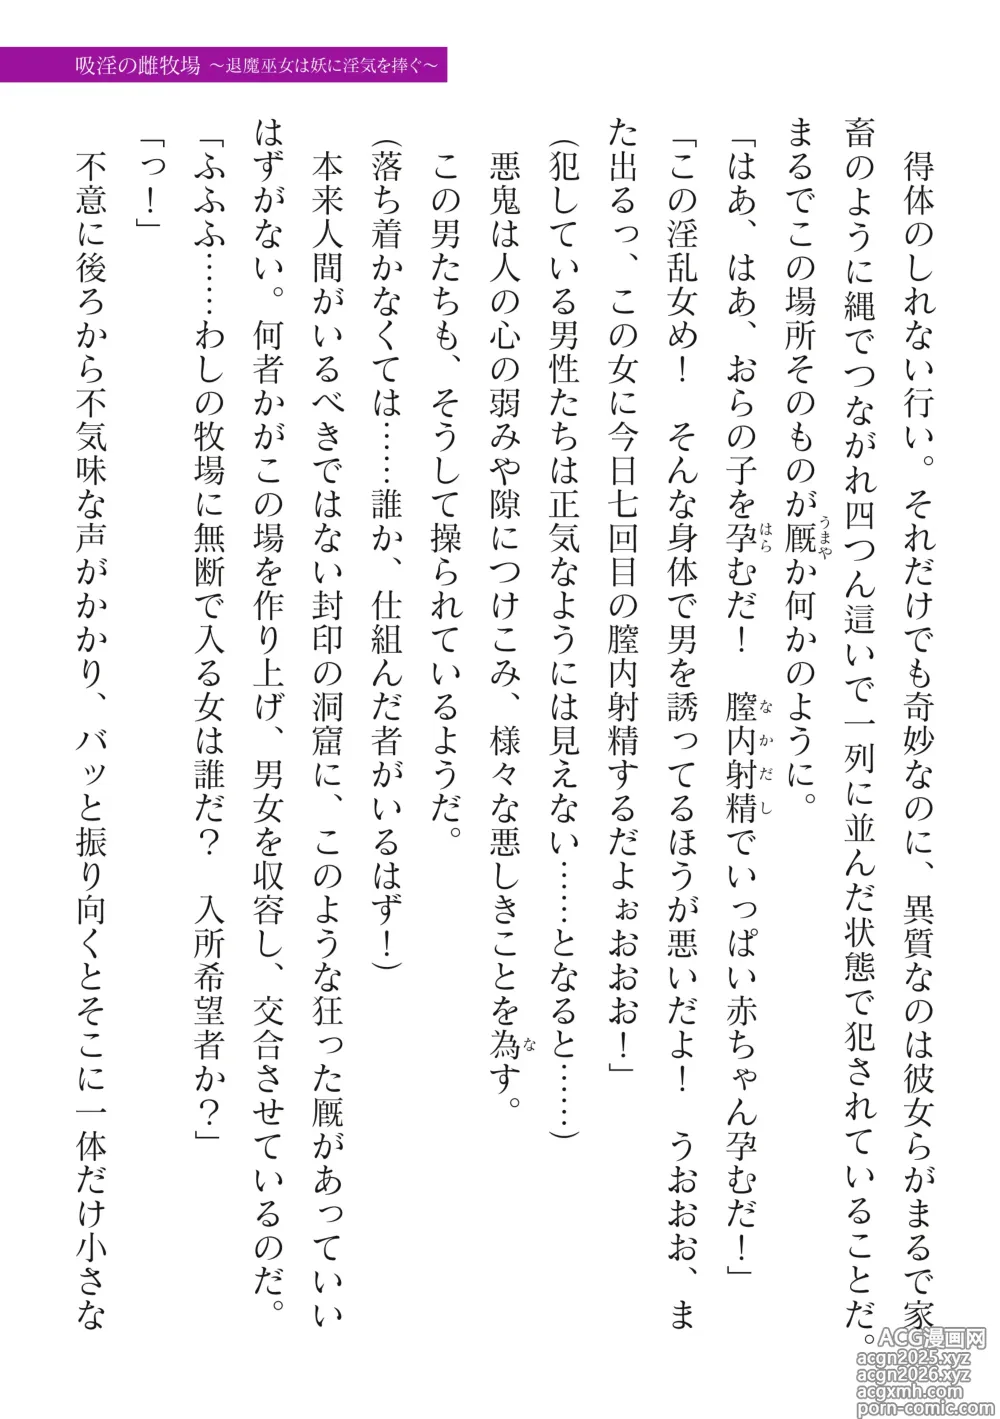 吸淫の雌牧場 ～退魔巫女は妖に淫気を捧ぐ～
得体のしれない行い。それだけでも奇妙なのに、異質なのは彼女らがまるで家
畜のように縄でつながれ四つん這いで一列に並んだ状態で犯されていることだ。
まるでこの場所そのものが厩か何かのように。
うまや
「はあ、はあ、おらの子を孕むだ！　膣内射精でいっぱい赤ちゃん孕むだ！」
はら
なかだし
「この淫乱女め！　そんな身体で男を誘ってるほうが悪いだよ！　うおおお、ま
た出るっ、この女に今日七回目の膣内射精するだよぉおおお！」
（犯している男性たちは正気なようには見えない……となると……）
悪鬼は人の心の弱みや隙につけこみ、様々な悪しきことを為す。
な
この男たちも、そうして操られているようだ。
（落ち着かなくては……誰か、仕組んだ者がいるはず！）
本来人間がいるべきではない封印の洞窟に、このような狂った厩があっていい
はずがない。何者かがこの場を作り上げ、男女を収容し、交合させているのだ。
「ふふふ……わしの牧場に無断で入る女は誰だ？　入所希望者か？」
「っ！」
不意に後ろから不気味な声がかかり、バッと振り向くとそこに一体だけ小さな
ACG漫画网
acgn2025.xyz
acgn2026.xyz
acgxmh.com
porn-comic.com